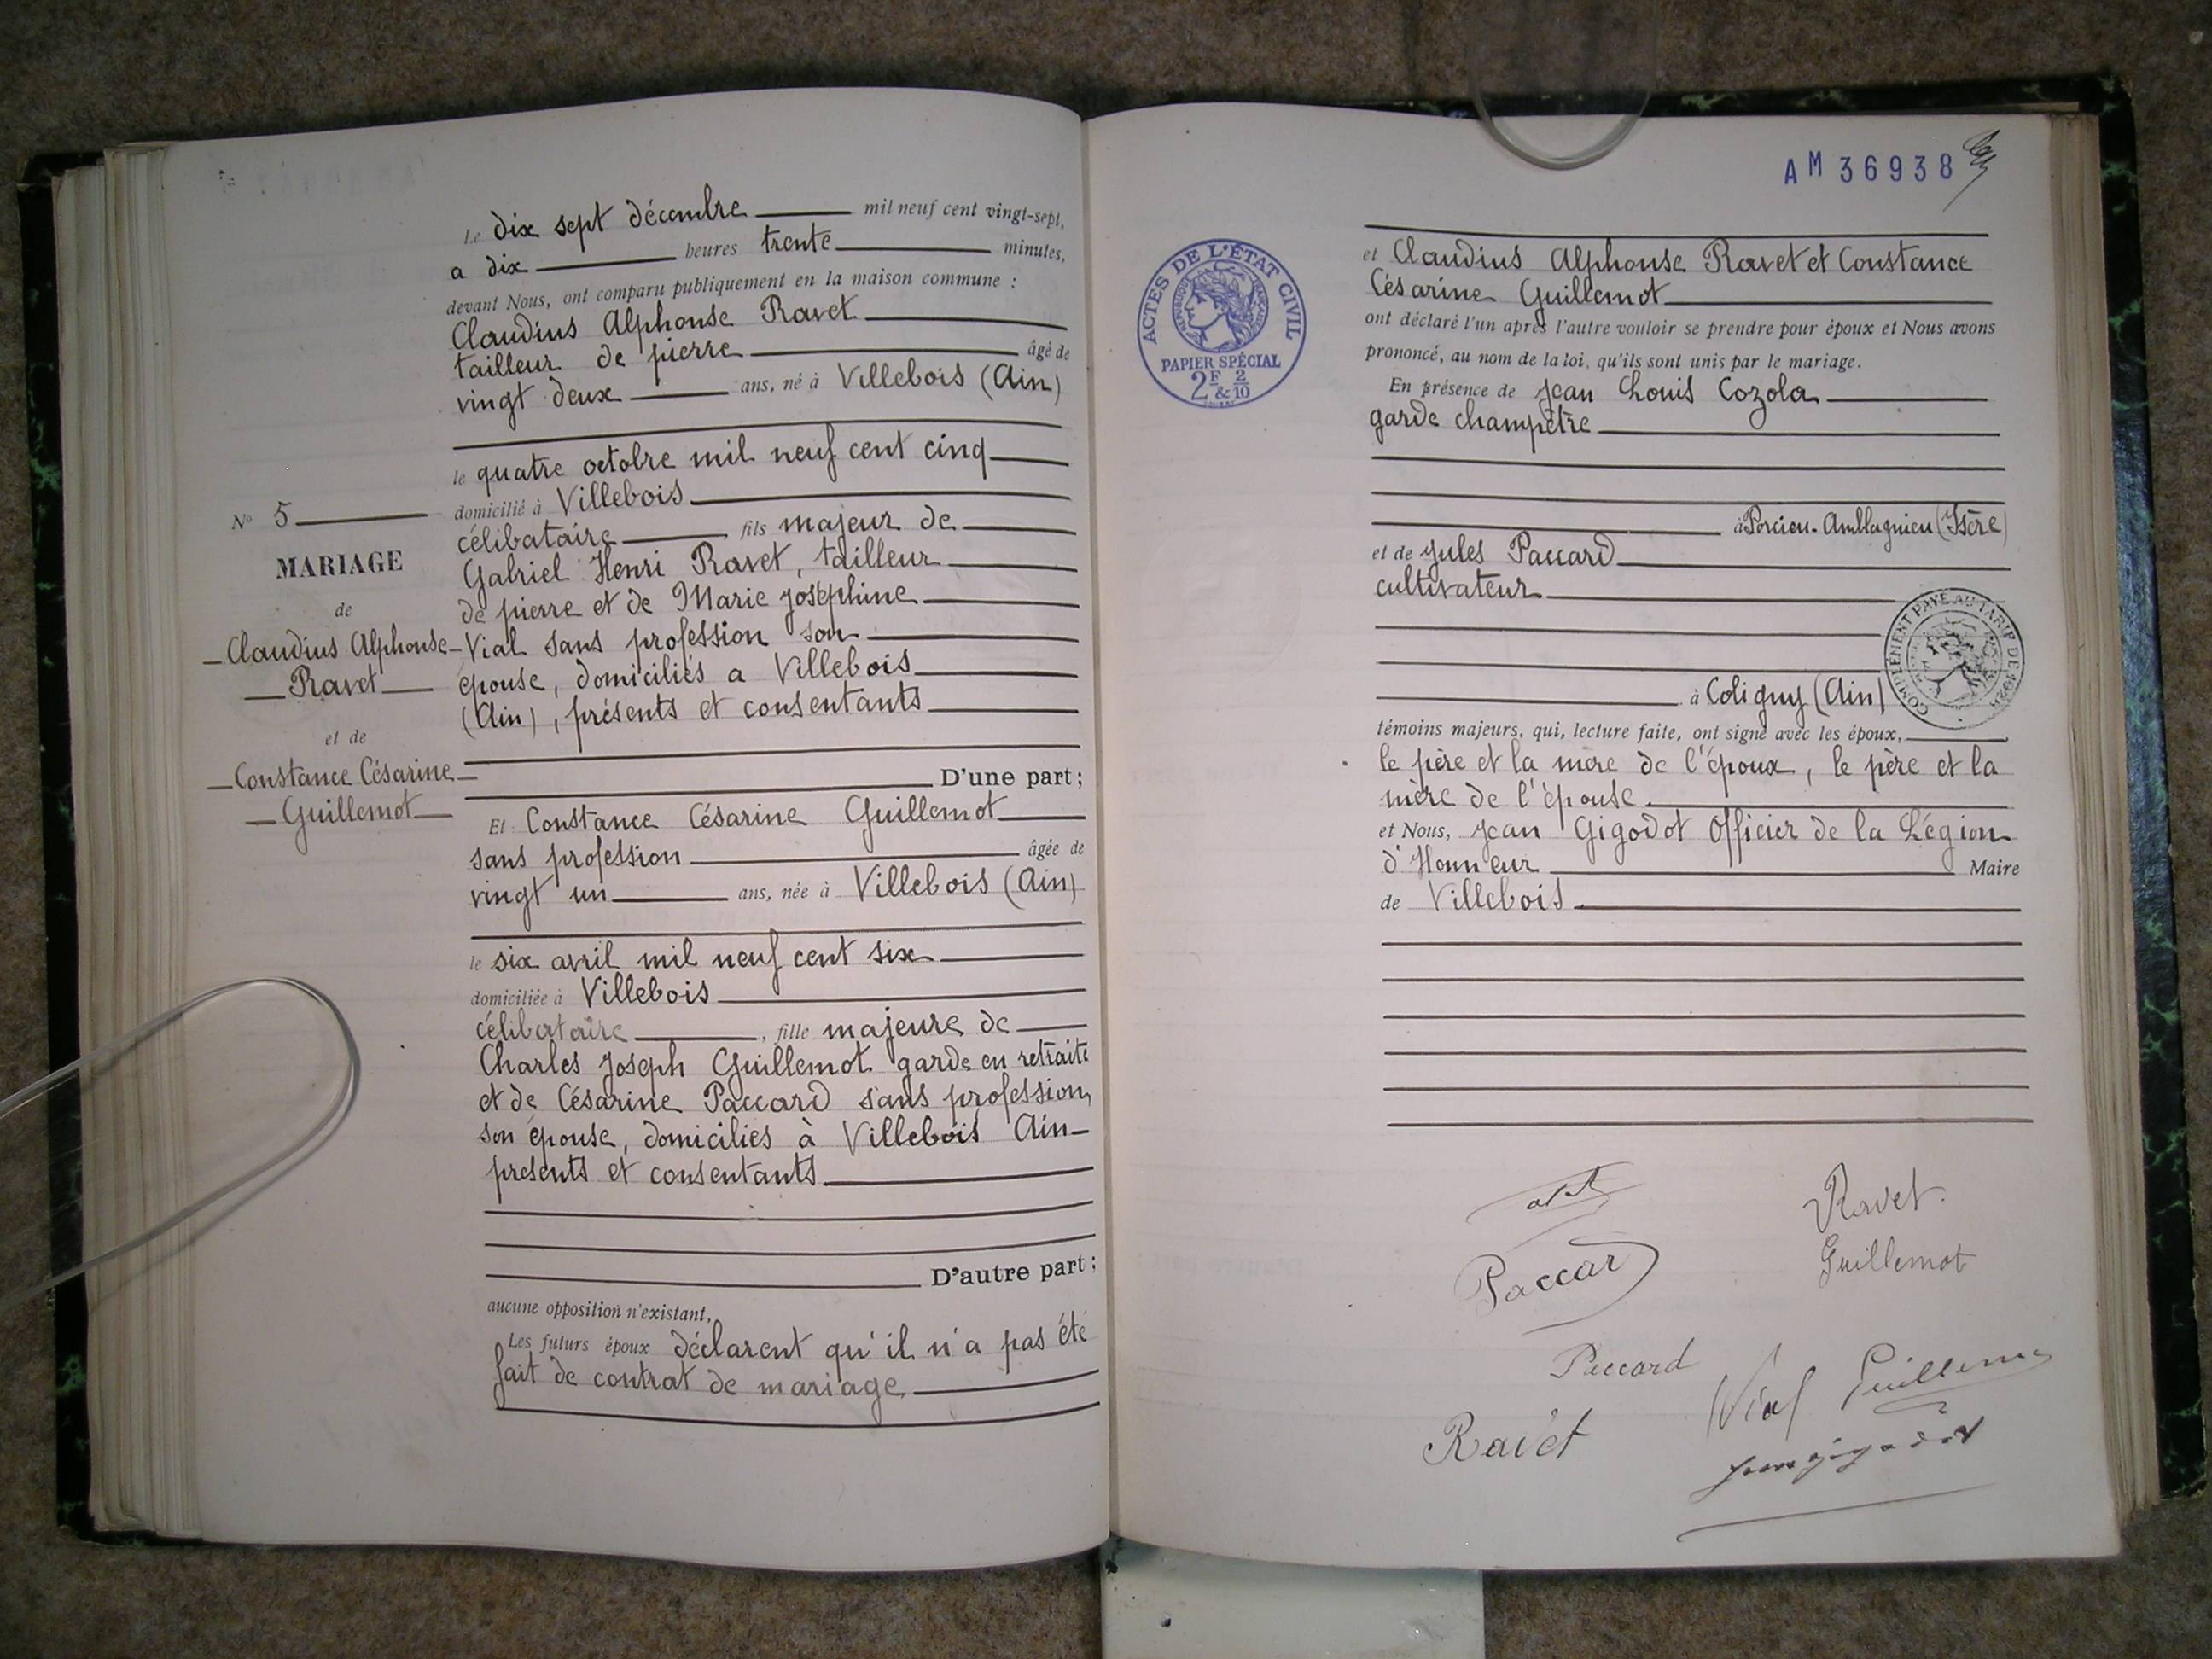 Le dix sept décembre mil neuf cent vingt-sept,
a dix heures trente minutes,
devant Nous, ont comparu publiquement en la maison commune :
Claudius Alphonse Ravet
tailleur de pierre âgé de
vingt deux ans, né à Villebois (Ain)
le quatre octobre mil neuf cent cinq
domicilié à Villebois
célibataire fils majeur de
Gabriel Henri Ravet, tailleur
de pierre et de Marie Joséphine
Vial sans profession son
épouse, domiciliés a Villebois
(Ain), présents et consentants
D'une part ;
Et Constance Césarine Guillemot
sans profession âgée de
vingt un ans, née à Villebois (Ain)
le six avril mil neuf cent six
domiciliée à Villebois
célibataire, fille majeure de
Charles Joseph Guillemot garde en retraite
et de Césarine Paccard sans profession,
son épouse, domiciliés à Villebois Ain
présents et consentants
D'autre part ;
aucune opposition n'existant,
Les futurs époux déclarent qu'il n'a pas été
fait de contrat de mariage
No 5
MARIAGE
de
Claudius Alphonse
Ravet
et de
Constance Césarine
Guillemot
AM 36938
ACTES DE L'ÉTAT CIVIL
RÉPUBLIQUE FRANÇAISE
PAPIER SPÉCIAL
2F & 2/10
et Claudius Alphonse Ravet et Constance
Césarine Guillemot
ont déclaré l'un après l'autre vouloir se prendre pour époux et Nous avons
prononcé, au nom de la loi, qu'ils sont unis par le mariage.
En présence de Jean Louis Cozola
garde champêtre
à Porcieu-Amblagnieu (Isère)
et de Jules Paccard
cultivateur
COMPLÉMENT PAYÉ AU TARIF DE
à Coligny (Ain)
témoins majeurs, qui, lecture faite, ont signé avec les époux,
le père et la mère de l'époux, le père et la
mère de l'épouse.
et Nous, Jean Gigodot Officier de la Légion
d'Honneur Maire
de Villebois.
Ravet
Paccard
Guillemot
Paccard
Vial
Ravet
Jean Gigodot